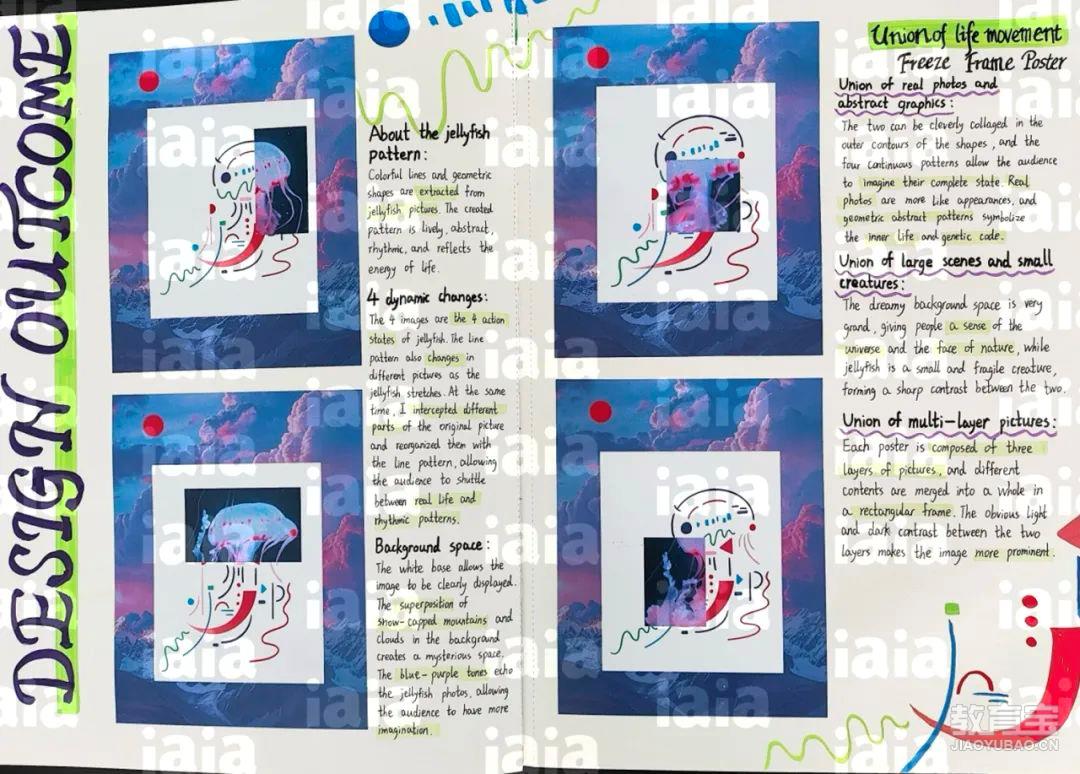 DESIGN OUTCOME
About the jellyfish
pattern:
Colorful lines and geometric
shapes are extracted from
jellyfish pictures. The created
pattern is lively, abstract,
rhythmic, and reflects the
energy of life.
4 dynamic changes:
The 4 images are the 4 action
states of jellyfish. The line
pattern also changes in
different pictures as the
jellyfish stretches. At the same
time, I intercepted different
parts of the original picture
and reorganized them with
the line pattern, allowing
the audience to shuttle
between real life and
rhythmic patterns.
Background space:
The white base allows the
image to be clearly displayed.
The superposition of
snow-capped mountains and
clouds in the background
creates a mysterious space.
The blue-purple tones echo
the jellyfish photos, allowing
the audience to have more
imagination.
Union of life movement
Freeze Frame Poster
Union of real photos and
abstract graphics:
The two can be cleverly collaged in the
outer contours of the shapes, and the
four continuous patterns allow the audience
to imagine their complete state. Real
photos are more like appearances, and
geometric abstract patterns symbolize
the inner life and genetic code.
Union of large scenes and small
creatures:
The dreamy background space is very
grand, giving people a sense of the
universe and the face of nature, while
jellyfish is a small and fragile creature,
forming a sharp contrast between the two.
Union of multi-layer pictures:
Each poster is composed of three
layers of pictures, and different
contents are merged into a whole in
a rectangular frame. The obvious light
and dark contrast between the two
layers makes the image more prominent.
iaia
教育宝
JIAOYUBAO.CN